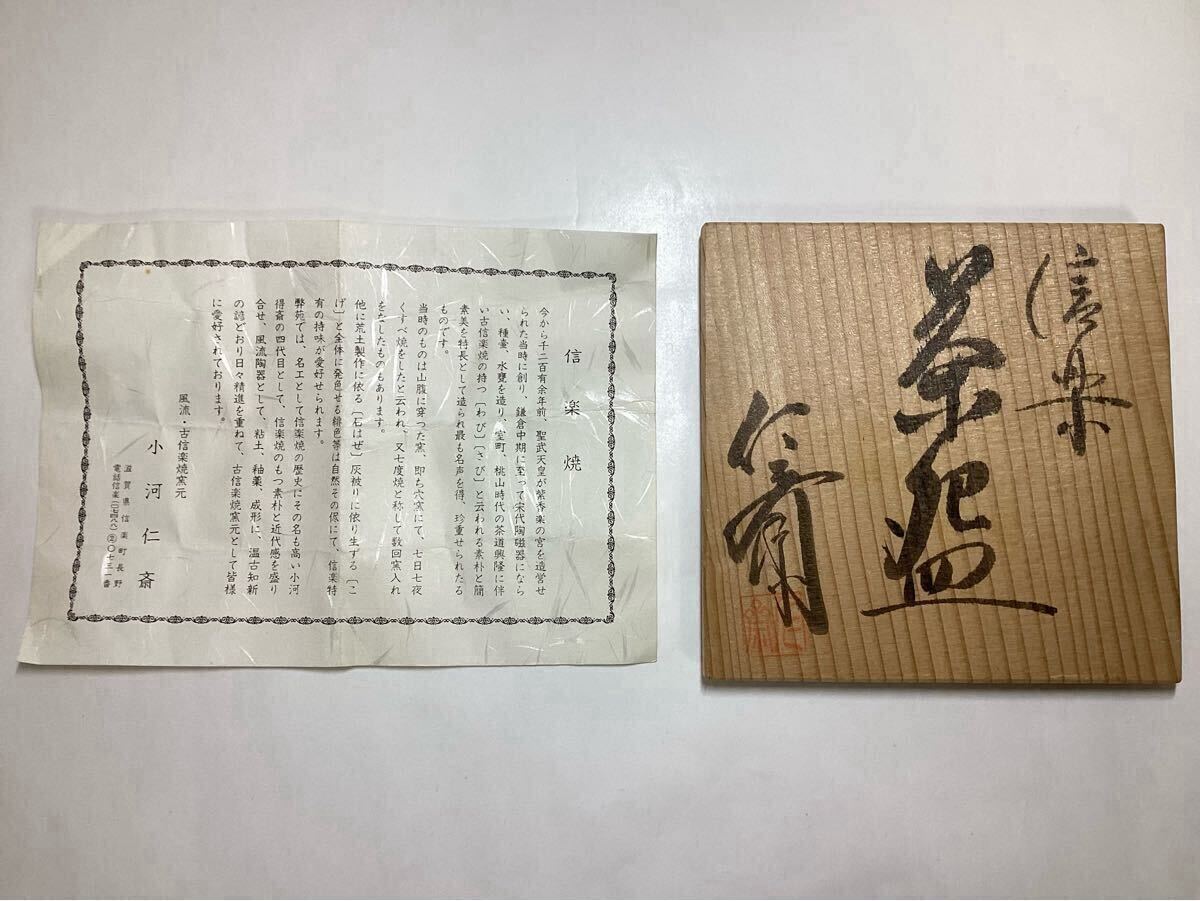 信楽焼
今から千二百有余年前、聖武天皇が紫香楽の宮を造営せ
られた当時に創り、鎌倉中期に至って宋代陶磁器になら
い、種壷、水甕を造り、室町、桃山時代の茶道興隆に伴
い古信楽焼の持つ〔わび〕〔さび〕と云われる素朴と簡
素美を特長として造られ最も名声を得、珍重せられたる
ものです。
当時のものは山腹に穿つた窯、即ち穴窯にて、七日七夜
くすべ焼をしたと云われ、又七度焼と称して数回窯入れ
をなしたものもあります。
他に荒土製作に依る〔石はぜ〕灰被りに依り生ずる〔こ
げ〕と全体に発色せる緋色等は自然その侭にて、信楽特
有の持味が愛好せられます。
弊苑では、名工として信楽焼の歴史にその名も高い小河
得斎の四代目として、信楽焼のもつ素朴と近代感を盛り
合せ、風流陶器として、粘土、釉薬、成形に、温古知新
の諺どおり日々精進を重ねて、古信楽焼窯元として皆様
に愛好されております。
風流・古信楽焼窯元
小河仁斎
滋賀県信楽町長野
電話信楽(〇七四八八)②〇七三一番
信楽
茶盌
仁斎